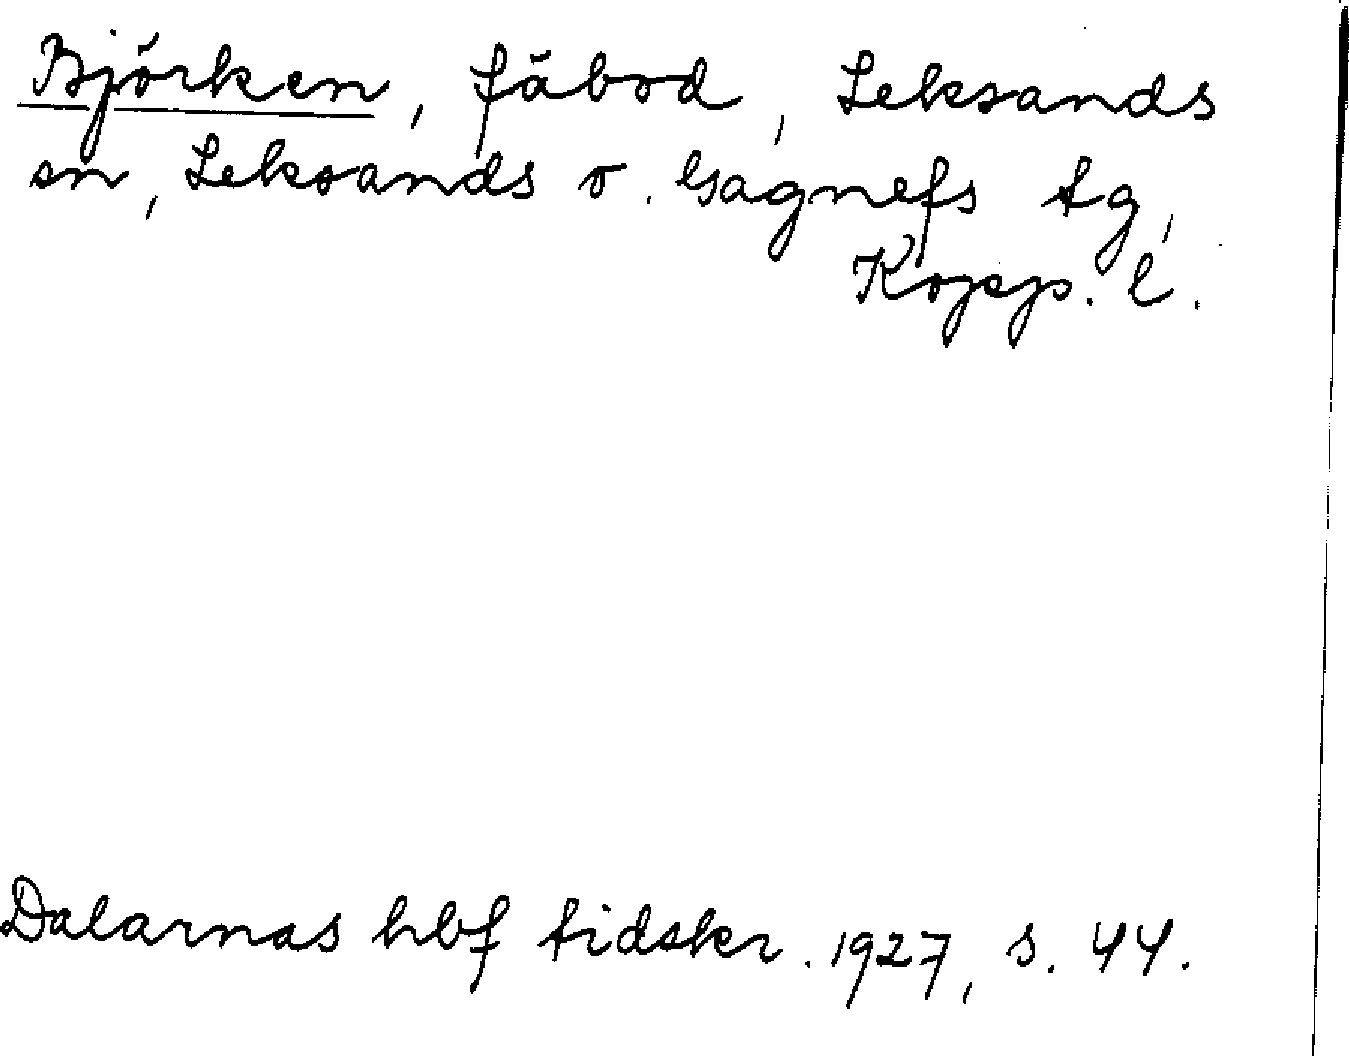 Björken, fäbod, Leksands
sn, Leksands o. Gagnefs tg,
Kopp. l.
Dalarnas hbf tidskr. 1927, s. 44.